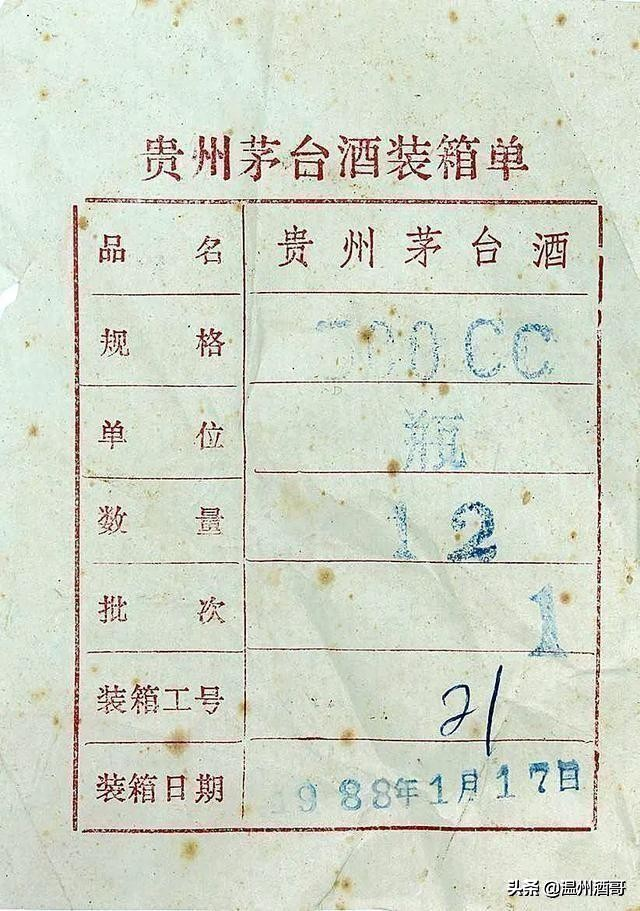 贵州茅台酒装箱单
品名 贵州茅台酒
规格 500CC
单位 瓶
数量 12
批次 1
装箱工号 21
装箱日期 1988年1月17日
头条 @温州酒哥